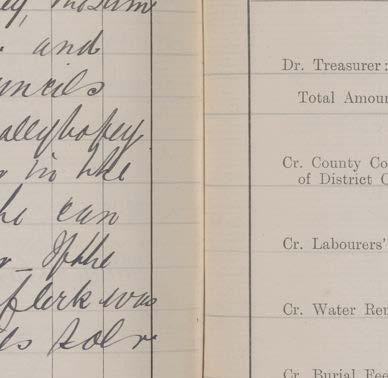 and
uncils
allybofey
in the
he can
If the
Clerk was
Dr. Treasurer:
Total Amoun
Cr. County Co
of District C
Cr. Labourers'
Cr. Water Ren
Cr. Burial Fee